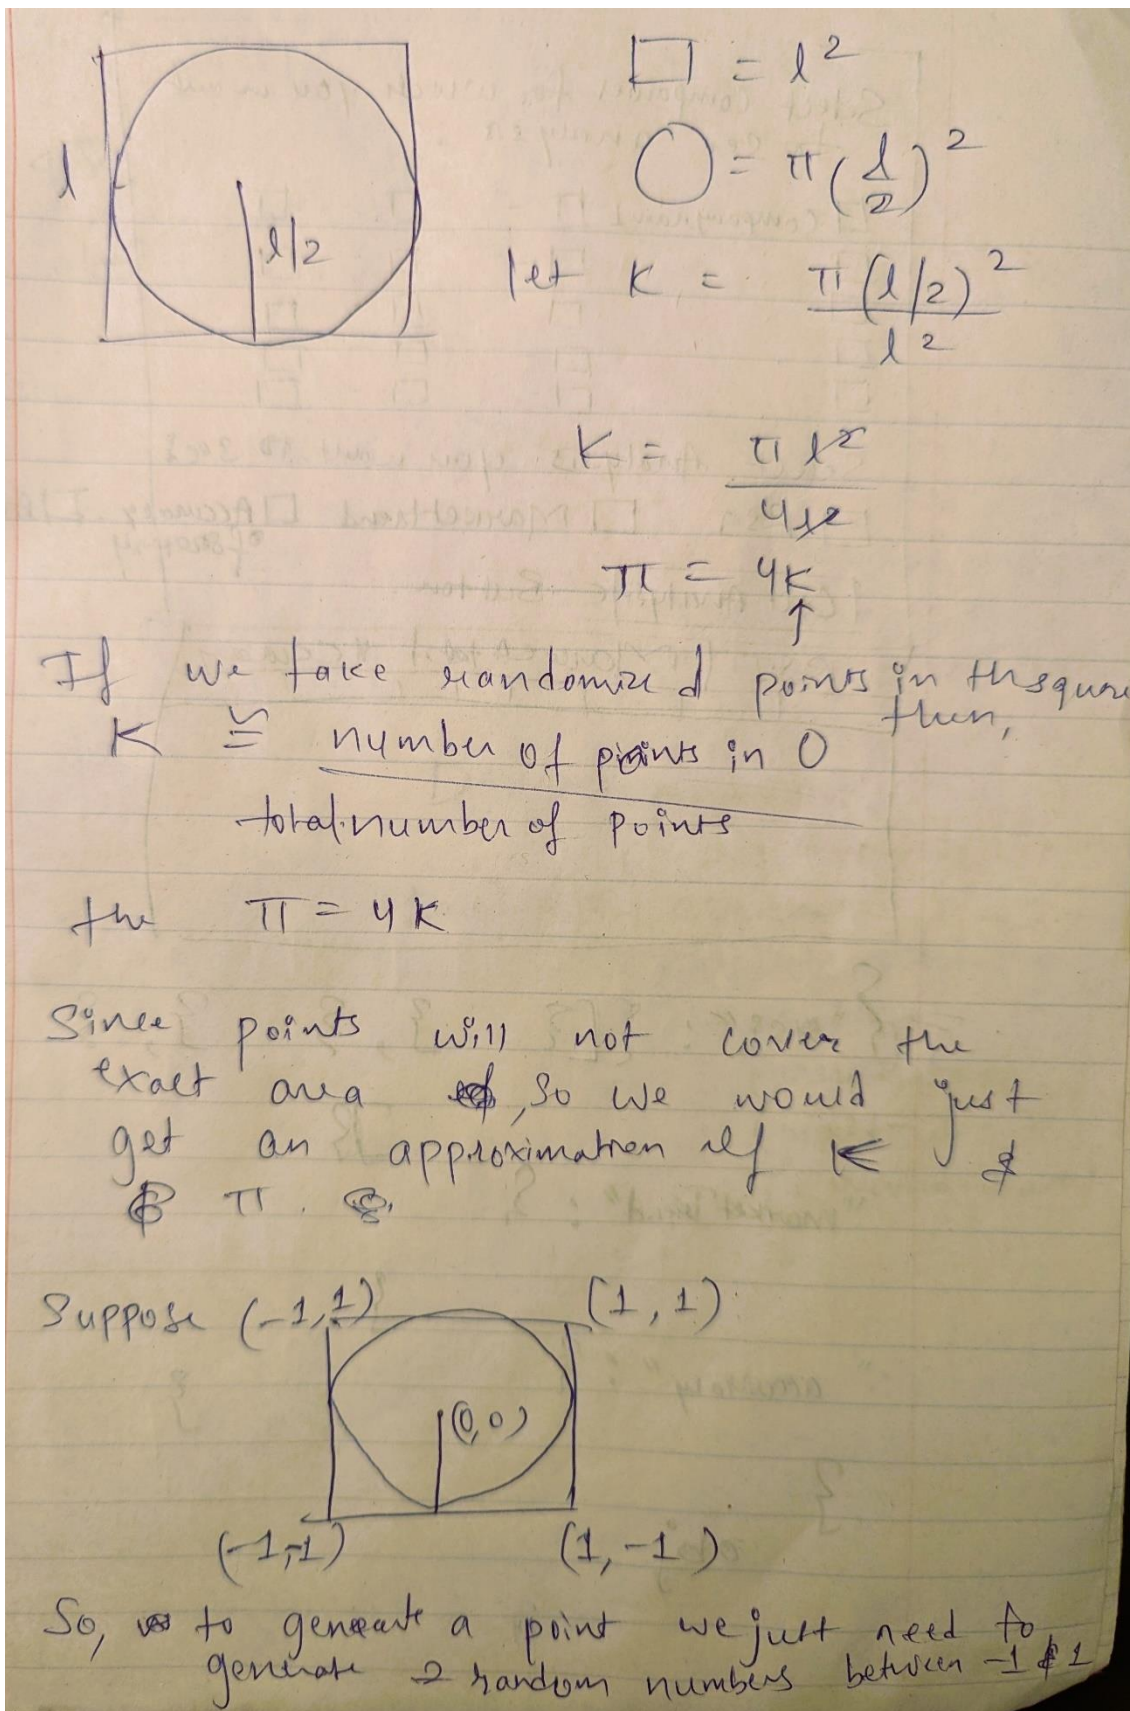 l
l/2
□ = l²
○ = π(l/2)²
let K = π(l/2)² / l²
K = πl² / 4l²
π = 4K
↑
If we take randomized points in thsquare then,
K ≅ number of points in O
total number of points
the π = 4K
Since points will not cover the
exact area , so we would just
get an approximation of K &
π .
Suppose (-1,1) (1,1)
(0,0)
(-1,-1) (1,-1)
So, to generate a point we just need to
generate 2 random numbers between -1 & 1